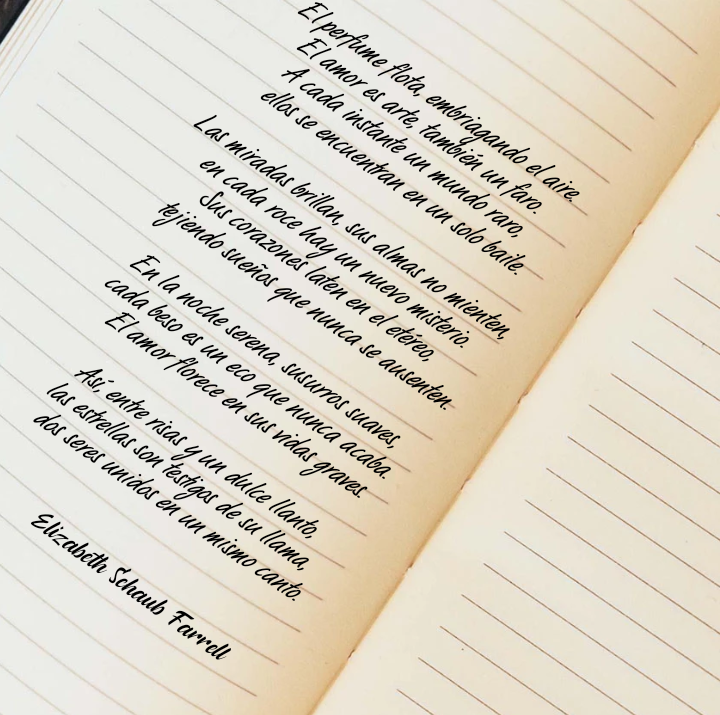 El perfume flota, embriagando el aire.
El amor es arte, también un faro.
A cada instante un mundo raro,
ellos se encuentran en un solo baile.
Las miradas brillan, sus almas no mienten,
en cada roce hay un nuevo misterio.
Sus corazones laten en el etéreo,
tejiendo sueños que nunca se ausenten.
En la noche serena, susurros suaves,
cada beso es un eco que nunca acaba.
El amor florece en sus vidas graves.
Así, entre risas y un dulce llanto,
las estrellas son testigos de su llama,
dos seres unidos en un mismo canto.
Elizabeth Schaub Farrell